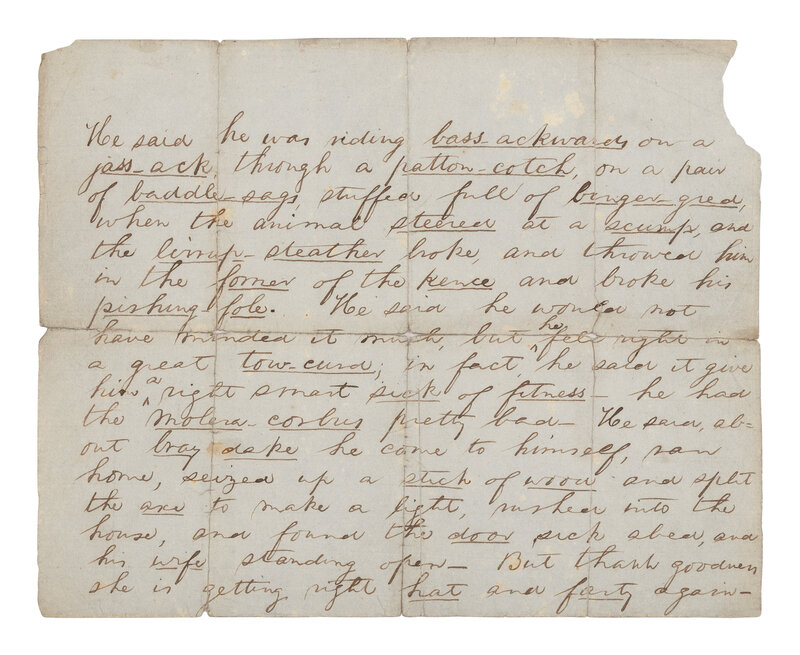 He said he was riding bass-ackwards on a
jass-ack, through a patton-cotch, on a pair
of baddle-sags, stuffed full of binger-gred,
when the animal steered at a scump, and
the lirrup-steather broke, and throwed him
in the forner of the kence and broke his
pishing-fole. He said he would not
have minded it much, but he fell right in
a great tow-curd; in fact, he said it give
him a right smart sick of fitness— he had
the molera-corbus pretty bad— He said, ab-
out bray dake he come to himself, ran
home, seized up a stick of wood and split
the axe to make a light, rushed into the
house, and found the door sick abed, and
his wife standing open— But thank goodness
she is getting right hat and farty again—